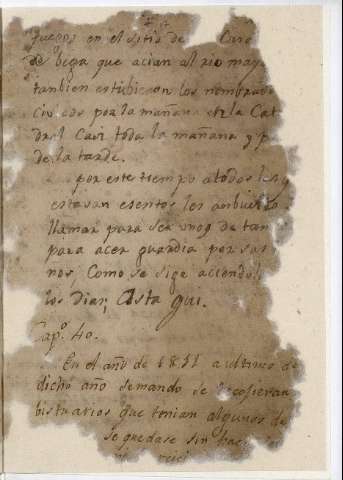 en el sitio de
de bega que acian al rio may
tanbien estubieron los nombrados
por la mañana de la Cat
dral Casi toda la mañana y p
de la tarde.
por este tiempo a todos los q
estavan esentos les an buelto
llamar para ser unos de tan
para acer guardia por sus
nos Como se sige aciendol
los Dias, asta qui.
Capº. 40.
En el año de 1811 a ultimos de
dicho año se mando se recogieran
bistuarios que tenian algunos de
se quedase sin